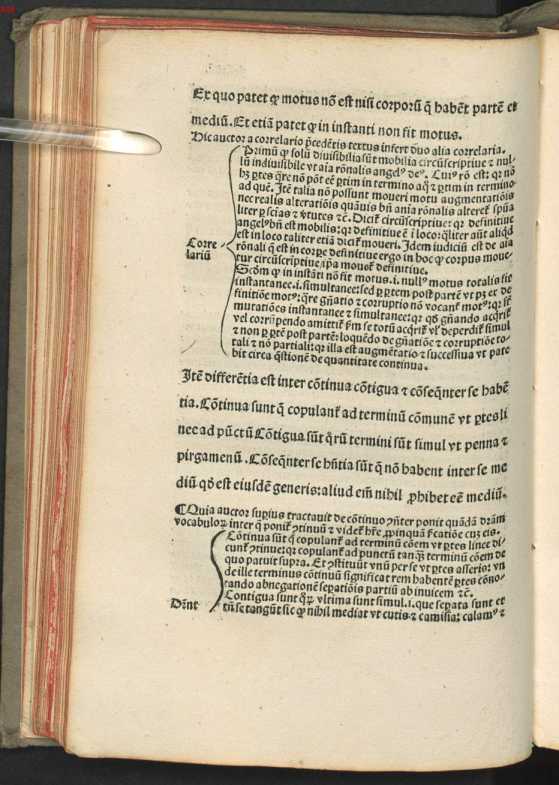 Ex quo patet ꝙ motus nō est nisi corporū q̄ habēt partē et
mediū. Et etiā patet ꝙ in instanti non fit motus.
Hic auctor a correlario p̄cedētis textus infert duo alia correlaria.
Primū ꝙ solū diuisibilia sūt mobilia circūscriptiue ⁊ nul-
lū indiuisibile vt aīa rōnalis angelꝰ deꝰ. Cuiꝰ rō est: qr nō
hꝫ ꝑtes q̄re nō pōt eē ꝑtim in termino aq̄ ⁊ ꝑtim in termino
ad quē. Itē talia nō possunt moueri motu augmentatiōis
nec realis alteratiōis quāuis bn̄ aīa rōnalis alteret̄ spūa
liter ꝑ scīas ⁊ v̄tutes ⁊c̄. Dicit̄ circūscriptiue: qr definitiue
angelꝰ bn̄ est mobilis: qr definitiue ē ī loco: q̄liter aūt aliqd
est in loco taliter etiā dicit̄ moueri. Idem iudiciū est de aīa
rōnali q̄ est in corpe definitiue ergo in hoc ꝙ corpus moue-
tur circūscriptiue ip̄a mouet̄ definitiue.
Corre
lariū
Scd̄m ꝙ in instāti nō fit motus .i. nullꝰ motus totalis fit
instantanee .i. simultanee: sed ꝑ ꝑtem post partē vt pꝫ ex de
finitiōe motꝰ: q̄re gn̄atio ⁊ corruptio nō vocant̄ motꝰ: qr st̄
mutatiōes instantanee ⁊ simultanee: qr qd̄ gn̄ando acq̄rit̄
vel corrūpendo amittit̄ fm̄ se totū acq̄rit̄ vl̓ deperdit̄ simul
⁊ non ꝑ ꝑtē post partē: loquēdo de gn̄atiōe ⁊ corruptiōe to-
tali ⁊ nō partiali: qr illa est augmētatio ⁊ successiua vt pate
bit circa q̄stionē de quantitate continua.
Itē differētia est inter cōtinua cōtigua ⁊ cōseq̄nter se habē
tia. Cōtinua sunt q̄ copulant̄ ad terminū cōmunē vt ꝑtes li
nee ad pūctū Cōtigua sūt q̄rū termini sūt simul vt penna ⁊
pirgamenū. Cōseq̄nter se hn̄tia sūt q̄ nō habent inter se me
diū qd̄ est eiusdē generis: aliud em̄ nihil ꝓhibet eē mediū.
¶ Quia auctor suꝑius tractauit de cōtinuo ꝯn̄ter ponit quādā dr̄am
vocabuloꝝ inter q̄ ponit̄ ꝯtinuū ⁊ videt̄ hr̄e ꝓpinquā
Cōtinua sūt q̄ copulant̄ ad terminū cōem vt ꝑtes linee di-
cunt̄ ꝯtinue: qr copulant̄ ad punctū tanqꝫ terminū cōem de
quo patuit supra. Et ꝯstituūt vnū per se vt ꝑtes asseris: vn
de ille terminus cōtinuū significat rem habentē ꝑtes cōno-
tando abnegationē seꝑatiōis partiū ab inuicem ⁊c̄.
Contigua sunt q̄ꝝ vltima sunt simul .i. que seꝑata sunt et
Dn̄nt
tn̄ se tangūt sic ꝙ nihil mediat vt cutis ⁊ camisia: calamꝰ ⁊